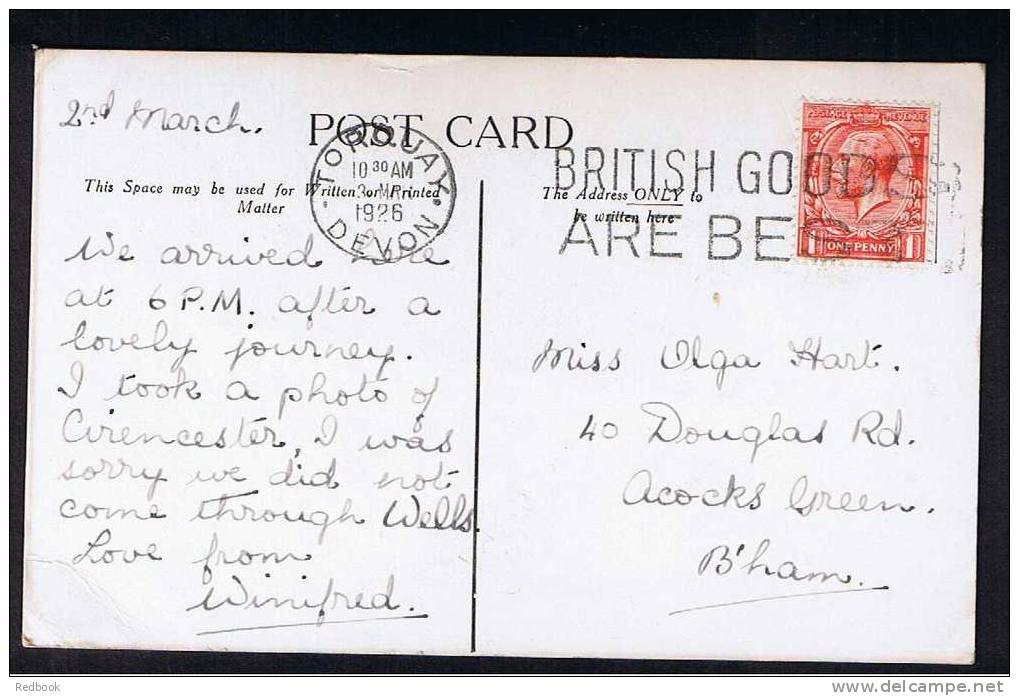 2nd March.
POST CARD
TORQUAY
10 30 AM
1926
DEVON
BRITISH GOODS
ARE BEST
POSTAGE REVENUE
1 ONE PENNY 1
This Space may be used for Written or Printed
Matter
The Address ONLY to
be written here
We arrived here
at 6 P.M. after a
lovely journey.
I took a photo of
Cirencester, I was
sorry we did not
come through Wells.
Love from
Winifred.
Miss Olga Hart.
40 Douglas Rd.
Acocks Green.
B'ham.
Redbook
delcampe.net